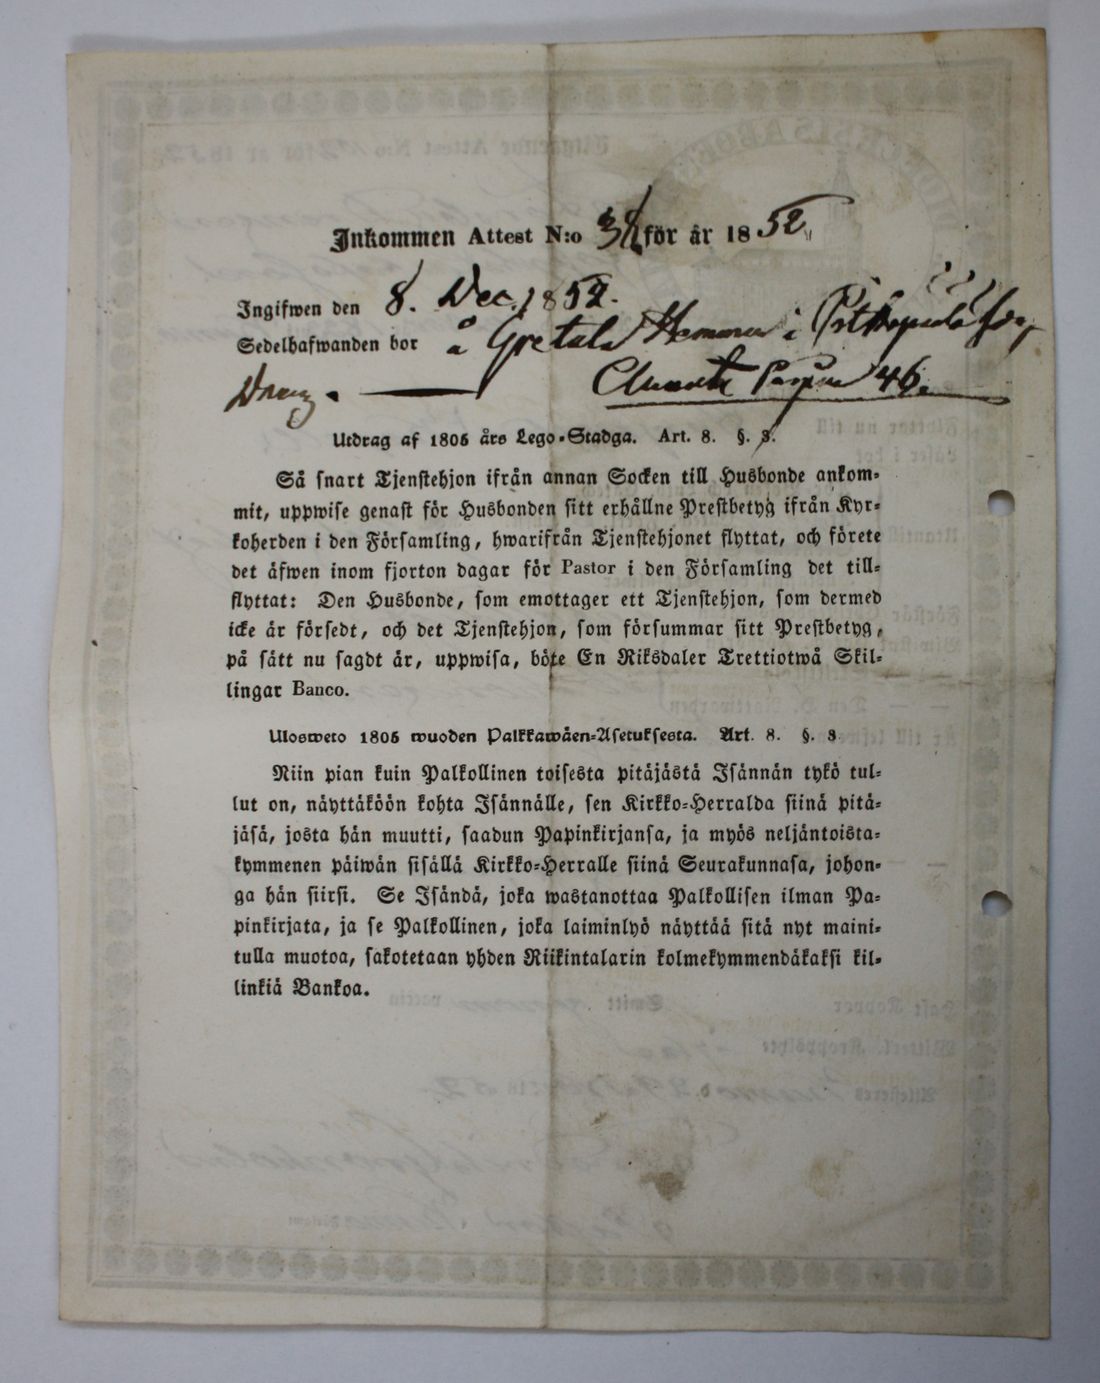 Inkommen Attest N:o 38 för år 1852
Ingifwen den 8. Dec. 1852.
Sedelhafwanden bor å Gretala Hemman i
Dräng. 46.
Utdrag af 1805 års Lego-Stadga. Art. 8. §. 3.
Så snart Tjenstehjon ifrån annan Socken till Husbonde ankom-
mit, uppwise genast för Husbonden sitt erhållne Prestbetyg ifrån Kyr-
koherden i den Församling, hwarifrån Tjenstehjonet flyttat, och förete
det äfwen inom fjorton dagar för Pastor i den Församling det till-
flyttat: Den Husbonde, som emottager ett Tjenstehjon, som dermed
icke är försedt, och det Tjenstehjon, som försummar sitt Prestbetyg,
på sätt nu sagdt är, uppwisa, böte En Riksdaler Trettiotwå Skil-
lingar Banco.
Ulosweto 1805 wuoden Palkkawäen-Asetuksesta. Art. 8. §. 3
Niin pian kuin Palkollinen toisesta pitäjästä Isännän tykö tul-
lut on, näyttäköön kohta Isännälle, sen Kirkko-Herralda siinä pitä-
jäsä, josta hän muutti, saadun Papinkirjansa, ja myös neljäntoista-
kymmenen päiwän sisällä Kirkko-Herralle siinä Seurakunnasa, johon-
ga hän siirsi. Se Isändä, joka wastanottaa Palkollisen ilman Pa-
pinkirjata, ja se Palkollinen, joka laiminlyö näyttää sitä nyt maini-
tulla muotoa, sakotetaan yhden Riikintalarin kolmekymmendäkaksi kil-
linkiä Bankoa.